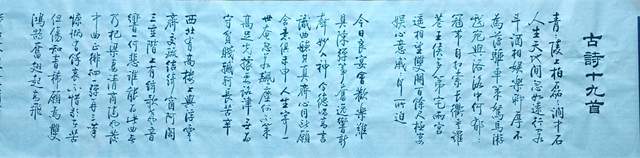 古詩十九首
青青陵上柏磊磊澗中石
人生天地間忽如遠行客
斗酒相娛樂聊厚不
為薄驅車策駑馬遊
戲宛與洛洛中何鬱鬱
冠帶自相索長衢羅夾
巷王侯多第宅兩宮
遙相望雙闕百餘尺極宴
娛心意戚戚何所迫
今日良宴會歡樂難
具陳彈箏奮逸響新
聲妙入神令德唱高言
識曲聽其真齊心同所願
含意俱未申人生寄一
世奄忽若飆塵何不策
高足先據要路津無為
守窮賤轗軻長苦辛
西北有高樓上與浮雲
齊交疏結綺窗阿閣
三重階上有絃歌聲音
響一何悲誰能為此曲無
乃杞梁妻清商隨風發
中曲正徘徊一彈再三歎
慷慨有餘哀不惜歌者苦
但傷知音稀願為雙
鴻鵠奮翅起高飛